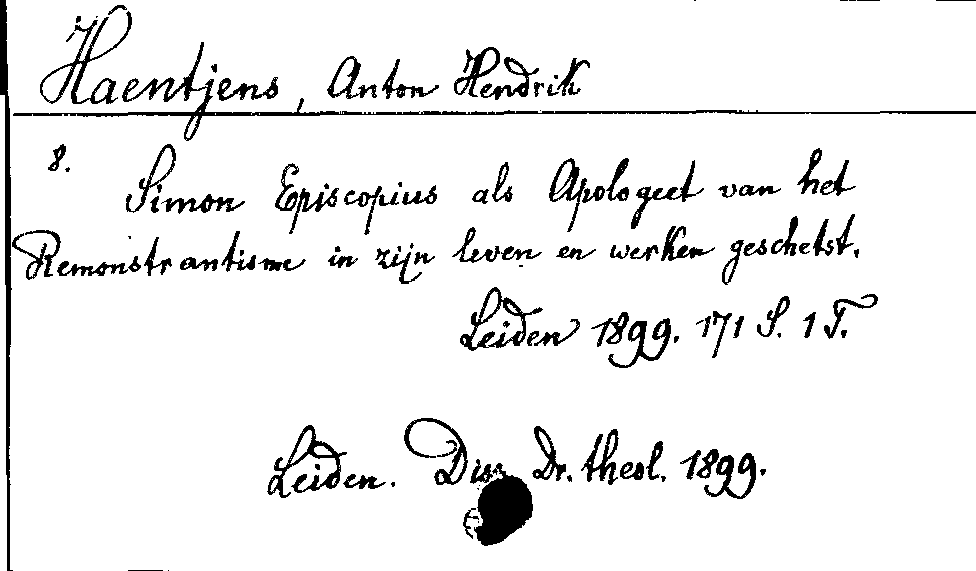 Haentjens, Anton Hendrik
8.
Simon Episcopius als Apologeet van het
Remonstrantisme in zijn leven en werken geschetst.
Leiden 1899. 171 S. 1 T.
Leiden. Diss. Dr. theol. 1899.